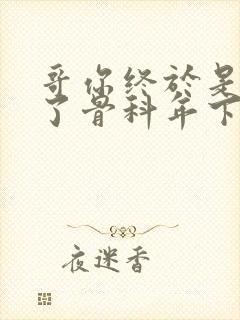 哥你终於是
了骨科年下
夜迷香